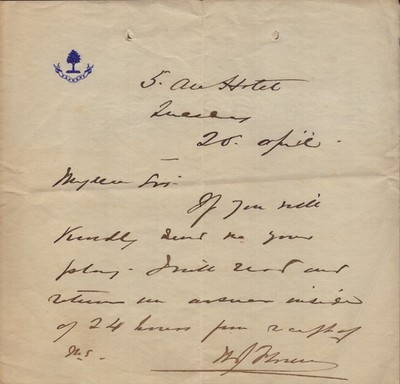 5. Av Hotel
Tuesday
20. April.
My dear Sir.
If you will
Kindly send me your
play. I will read and
return an answer inside
of 24 hours from receipt of
Ms.